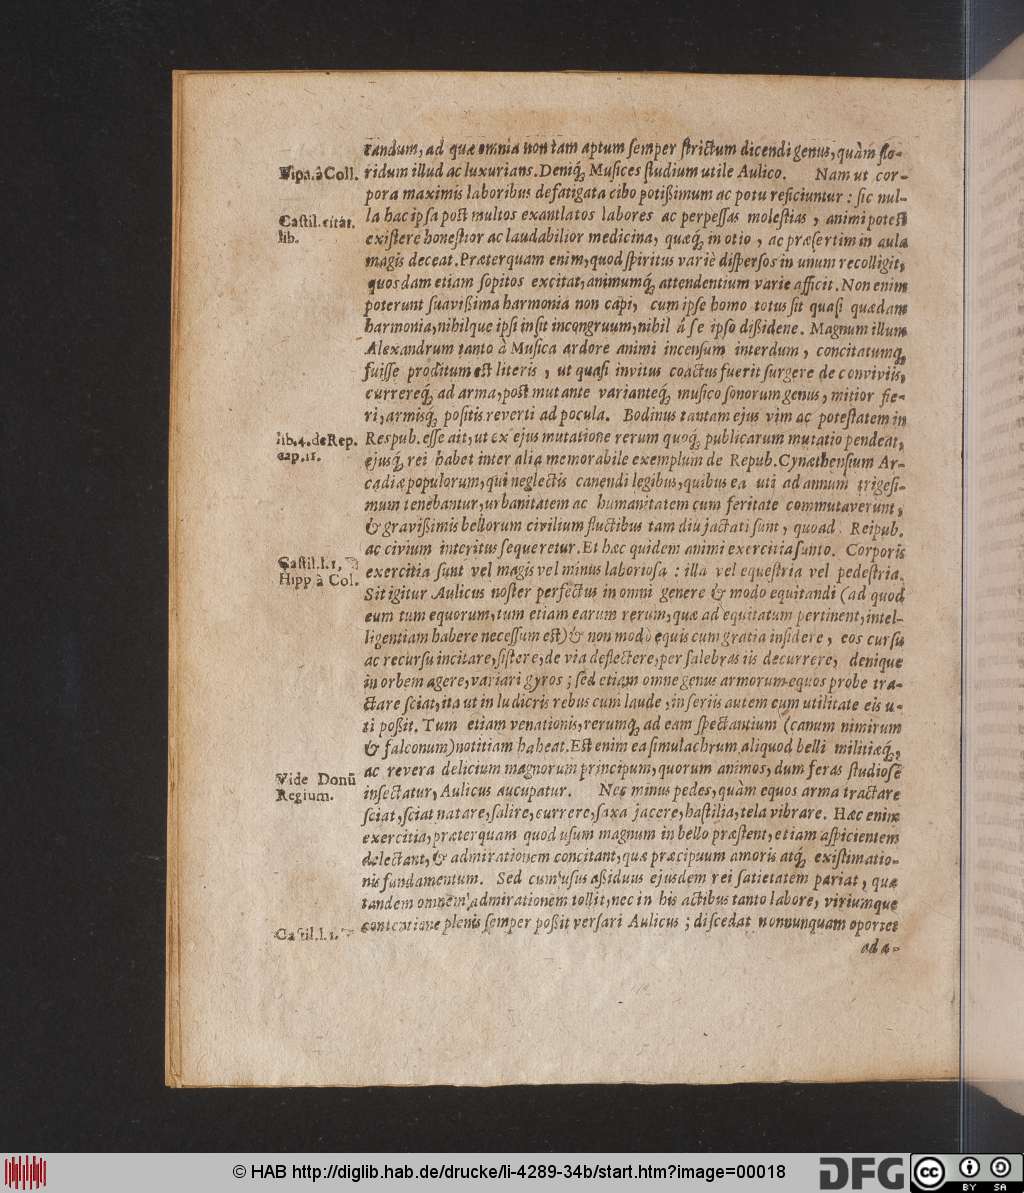 tandum, ad quæ omnia non tam aptum semper strictum dicendi genus, quàm flo-
Hipa. à Coll. ridum illud ac luxurians. Deniq; Musices studium utile Aulico. Nam ut cor-
pora maximis laboribus defatigata cibo potißimum ac potu reficiuntur : sic nul-
Castil. citat. la hac ipsa post multos exantlatos labores ac perpessas molestias , animi potest
lib. existere honestior ac laudabilior medicina, quæq; in otio , ac præsertim in aula
magis deceat. Præterquam enim, quod spiritus variè dispersos in unum recolligit,
quosdam etiam sopitos excitat, animumq; attendentium varie afficit. Non enim
poterunt suavißima harmonia non capi, cum ipse homo totus sit quasi quædam
harmonia, nihilque ipsi insit incongruum, nihil á se ipso dißidens. Magnum illum
Alexandrum tanto à Musica ardore animi incensum interdum , concitatumq;
fuisse proditum est literis , ut quasi invitus coactus fuerit surgere de conviviis,
currereq; ad arma, post mutante varianteq; musico sonorum genus , mitior fie-
ri, armisq; positis reverti ad pocula. Bodinus tantam ejus vim ac potestatem in
lib. 4. de Rep. Respub. esse ait, ut ex ejus mutatione rerum quoq; publicarum mutatio pendeat,
cap. 11. ejusq; rei habet inter alia memorabile exemplum de Repub. Cynæthensium Ar-
cadiæ populorum, qui neglectis canendi legibus, quibus ea uti ad annum trigesi-
mum tenebantur, urbanitatem ac humanitatem cum feritate commutaverunt,
& gravißimis bellorum civilium fluctibus tam diu jactati sunt, quoad Reipub.
ac civium interitus sequeretur. Et hæc quidem animi exercitia sunto. Corporis
Castil. l. 1, exercitia sunt vel magis vel minus laboriosa : illa vel equestria vel pedestria.
Hipp à Col. Sit igitur Aulicus noster perfectus in omni genere & modo equitandi (ad quod
eum tum equorum, tum etiam earum rerum, quæ ad equitatum pertinent, intel-
ligentiam habere necessum est) & non modò equis cum gratia insidere , eos cursu
ac recursu incitare, sistere, de via deflectere, per salebras iis decurrere, denique
in orbem agere, variari gyros ; sed etiam omne genus armorum equos probe tra-
ctare sciat, ita ut in ludicris rebus cum laude , in seriis autem cum utilitate eis u-
ti poßit. Tum etiam venationis, rerumq; ad eam spectantium (canum nimirum
& falconum) notitiam habeat. Est enim ea simulachrum aliquod belli militiæq;,
Vide Donū ac revera delicium magnorum principum, quorum animos, dum feras studiose
Regium. insectatur, Aulicus aucupatur. Nec minus pedes, quàm equos arma tractare
sciat, sciat natare, salire, currere, saxa jacere, hastilia, tela vibrare. Hæc enim
exercitia, præterquam quod usum magnum in bello præstent, etiam aspicientem
delectant, & admirationem concitant, quæ præcipuum amoris atq; existimatio-
nis fundamentum. Sed cum usus aßiduus ejusdem rei satietatem pariat, quæ
tandem omnem admirationem tollit, nec in his actibus tanto labore, viriumque
Castil. l. 1. contentione plenis semper poßit versari Aulicus ; discedat nonnunquam oportet
ad a-
© HAB http://diglib.hab.de/drucke/li-4289-34b/start.htm?image=00018 DFG cc BY SA